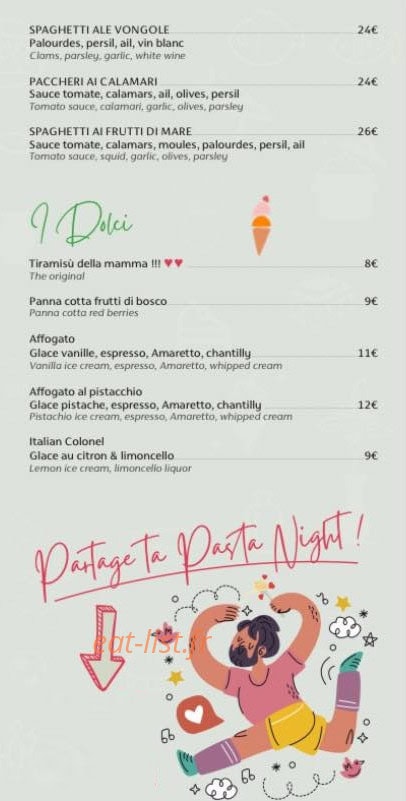 SPAGHETTI ALE VONGOLE 24€
Palourdes, persil, ail, vin blanc
Clams, parsley, garlic, white wine
PACCHERI AI CALAMARI 24€
Sauce tomate, calamars, ail, olives, persil
Tomato sauce, calamari, garlic, olives, parsley
SPAGHETTI AI FRUTTI DI MARE 26€
Sauce tomate, calamars, moules, palourdes, persil, ail
Tomato sauce, squid, garlic, olives, parsley
I Dolci
Tiramisù della mamma !!! ♥♥ 8€
The original
Panna cotta frutti di bosco 9€
Panna cotta red berries
Affogato
Glace vanille, espresso, Amaretto, chantilly 11€
Vanilla ice cream, espresso, Amaretto, whipped cream
Affogato al pistacchio
Glace pistache, espresso, Amaretto, chantilly 12€
Pistachio ice cream, espresso, Amaretto, whipped cream
Italian Colonel
Glace au citron & limoncello 9€
Lemon ice cream, limoncello liquor
Partage ta Pasta Night !
eat-list.fr